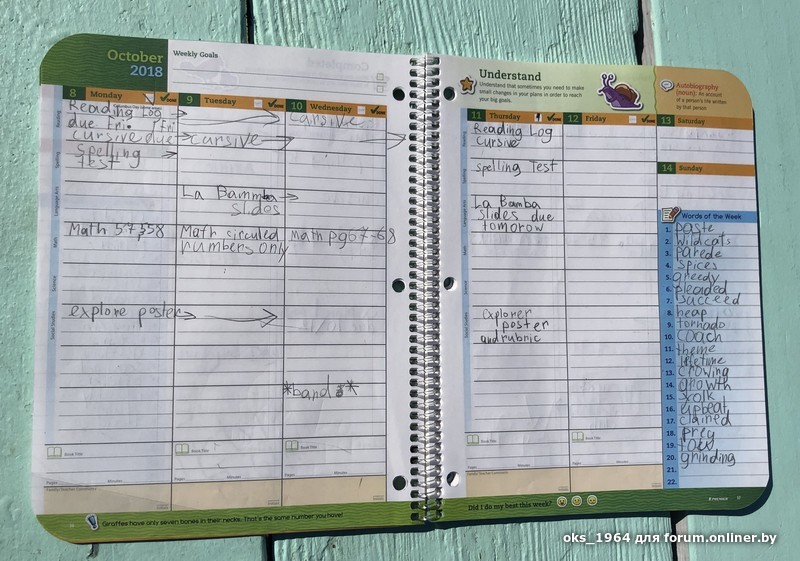 October
2018
Weekly Goals
8 Monday
Reading Log
due Fri.
cursive due
spelling
test
Math 57,58
explore poster
9 Tuesday
cursive
La Bammba
slides
Math sirculed
numbers only
10 Wednesday
cursive
math pg67-68
*band *
Book Title
Pages
Minutes
Giraffes have only seven bones in their necks. That's the same number you have!
Understand
Understand that sometimes you need to make
small changes in your plans in order to reach
your big goals.
Autobiography
(noun): An account
of a person's life written
by that person
11 Thursday
Reading Log
cursive
spelling Test
La Bamba
slides due
tomorow
explorer
poster
and rubric
12 Friday
13 Saturday
14 Sunday
Words of the Week
1. paste
2. wildcats
3. parede
4. spices
5. greedy
6. pleaded
7. succeed
8. heap
9. tornado
10. coach
11. theme
12. lifetime
13. crowing
14. growth
15. skolk
16. upbeat
17. clained
18. prey
19. tow
20. grinding
21.
22.
Reading
Spelling
Language Arts
Math
Science
Social Studies
Book Title
Pages
Minutes
Did I do my best this week?
oks_1964 для forum.onliner.by